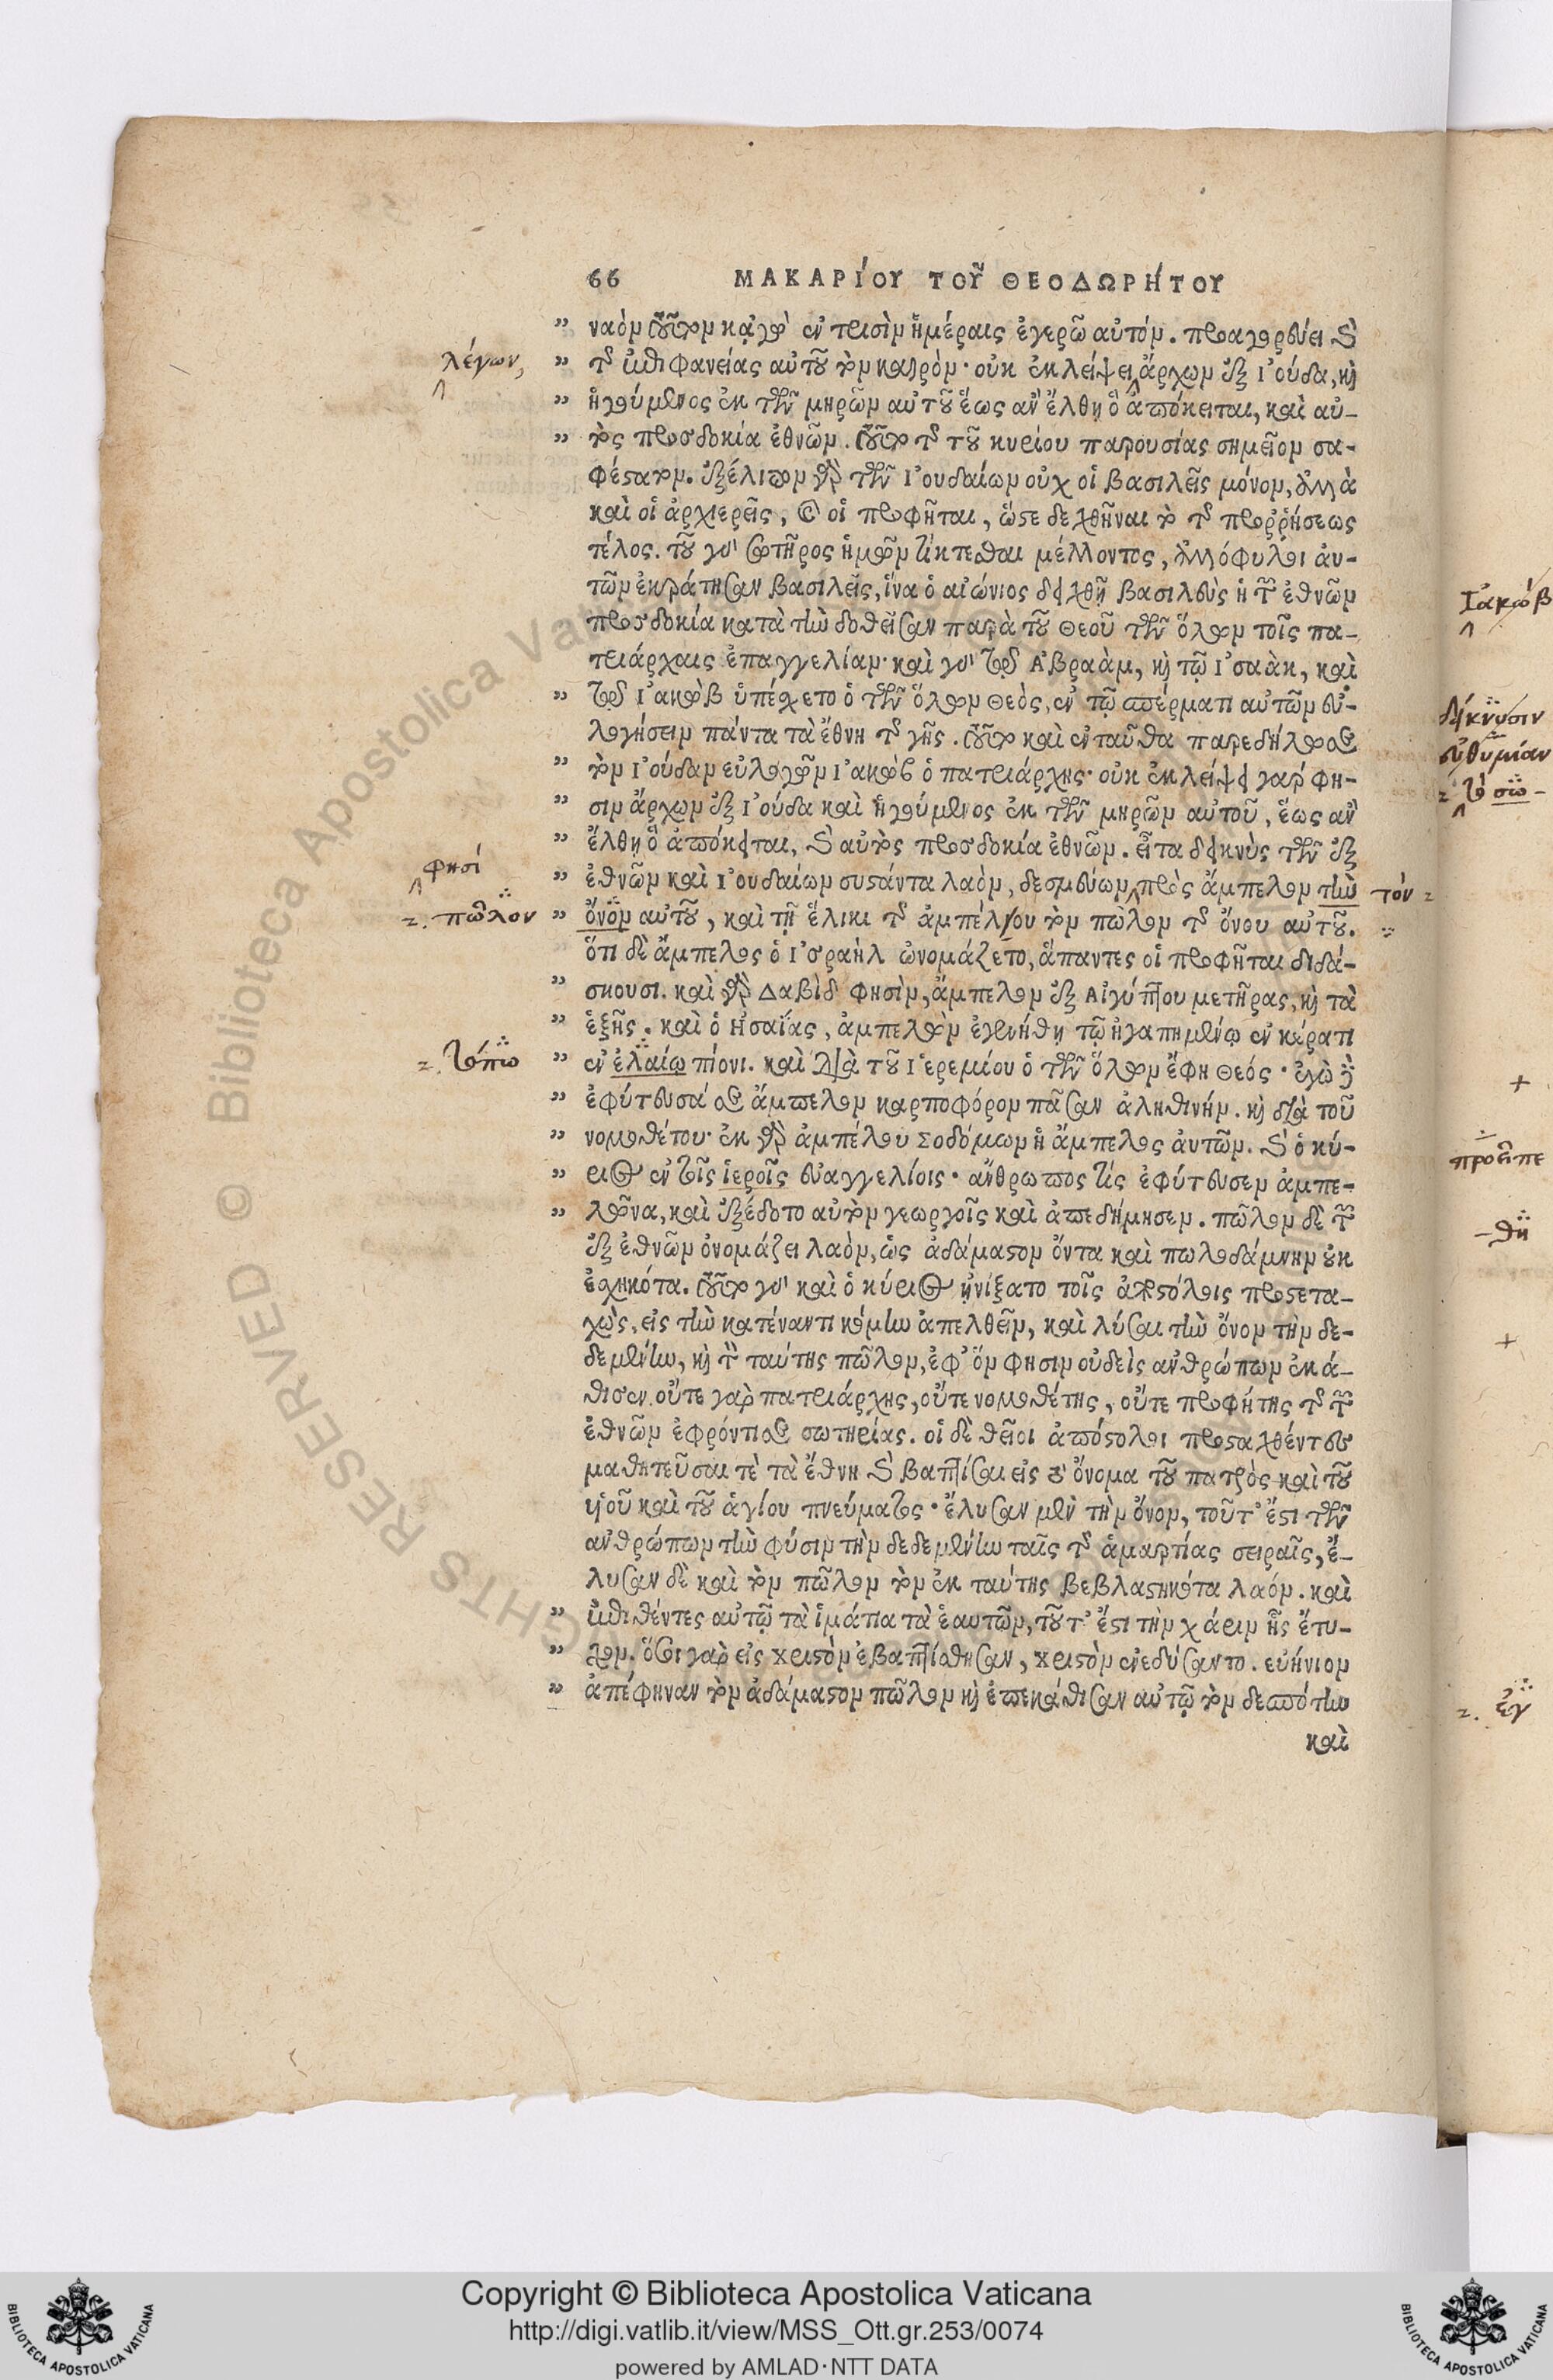 66 ΜΑΚΑΡΙΌΥ ΤΟΥ͂ ΘΕΟΔΩΡΉΤΟΥ
ναὸν τοῦτον καὶ ἐν τρισὶν ἡμέραις ἐγερῶ αὐτόν. προαγορεύει καὶ
τῆς ἐπιφανείας αὐτοῦ τὸν καιρὸν· οὐκ ἐκλείψει ἄρχων ἐξ Ἰούδα, καὶ
λέγων,
ἡγούμενος ἐκ τῶν μηρῶν αὐτοῦ ἕως ἂν ἔλθῃ ὃ ἀπόκειται, καὶ αὐ-
τὸς προσδοκία ἐθνῶν. τοῦτο τῆς τοῦ κυρίου παρουσίας σημεῖον σα-
φέστατον. ἐξέλιπον γὰρ τῶν Ἰουδαίων οὐχ οἱ βασιλεῖς μόνον, ἀλλὰ
καὶ οἱ ἀρχιερεῖς, καὶ οἱ προφῆται, ὥστε δειχθῆναι τὸ τῆς προῤῥήσεως
τέλος. τοῦ γὰρ σωτῆρος ἡμῶν τίκτεσθαι μέλλοντος, ἀλλόφυλοι αὐ-
τῶν ἐκράτησαν βασιλεῖς, ἵνα ὁ αἰώνιος δειχθῇ βασιλεὺς ἡ τῶν ἐθνῶν
προσδοκία κατὰ τὴν δοθεῖσαν παρὰ τοῦ Θεοῦ τῶν ὅλων τοῖς πα-
τριάρχαις ἐπαγγελίαν· καὶ γὰρ τῷ Ἀβραὰμ, καὶ τῷ Ἰσαὰκ, καὶ
τῷ Ἰακὼβ ὑπέσχετο ὁ τῶν ὅλων Θεὸς, ἐν τῷ σπέρματι αὐτῶν εὐ-
λογήσειν πάντα τὰ ἔθνη τῆς γῆς. τοῦτο καὶ ἐνταῦθα παρεδήλωσε
τὸν Ἰούδαν εὐλογῶν Ἰακὼβ ὁ πατριάρχης· οὐκ ἐκλείψει γὰρ φη-
σιν ἄρχων ἐξ Ἰούδα καὶ ἡγούμενος ἐκ τῶν μηρῶν αὐτοῦ, ἕως ἂν
ἔλθῃ ὃ ἀπόκειται, καὶ αὐτὸς προσδοκία ἐθνῶν. εἶτα δεικνὺς τὸν ἐξ
φησί
ἐθνῶν καὶ Ἰουδαίων συστάντα λαὸν, δεσμεύων, πρὸς ἄμπελον τὴν
τόν
πῶλον
ὄνον αὐτοῦ, καὶ τῇ ἕλικι τῆς ἀμπέλου τὸν πῶλον τῆς ὄνου αὐτοῦ.
ὅτι δὲ ἄμπελος ὁ Ἰσραὴλ ὠνομάζετο, ἅπαντες οἱ προφῆται διδά-
σκουσι. καὶ γὰρ Δαβὶδ φησὶν, ἄμπελον ἐξ Αἰγύπτου μετῆρας, καὶ τὰ
ἑξῆς. καὶ ὁ Ἠσαΐας, ἀμπελὼν ἐγενήθη τῷ ἠγαπημένῳ ἐν κέρατι
τόπω
ἐν ἐλαίῳ πίονι. καὶ διὰ τοῦ Ἱερεμίου ὁ τῶν ὅλων ἔφη Θεός· ἐγὼ δὲ
ἐφύτευσά σε ἄμπελον καρποφόρον πᾶσαν ἀληθινήν. καὶ διὰ τοῦ
νομοθέτου· ἐκ γὰρ ἀμπέλου Σοδόμων ἡ ἄμπελος αὐτῶν. καὶ ὁ κύ-
ριος ἐν τοῖς ἱεροῖς εὐαγγελίοις· ἄνθρωπος τίς ἐφύτευσεν ἀμπε-
λῶνα, καὶ ἐξέδοτο αὐτὸν γεωργοῖς καὶ ἀπεδήμησεν. πῶλον δὲ τὸν
ἐξ ἐθνῶν ὀνομάζει λαὸν, ὡς ἀδάμαστον ὄντα καὶ πωλοδάμνην οὐκ
ἐσχηκότα. τοῦτο γὰρ καὶ ὁ κύριος ᾐνίξατο τοῖς ἀποστόλοις προστετα-
χὼς, εἰς τὴν κατέναντι κώμην ἀπελθεῖν, καὶ λύσαι τὴν ὄνον τὴν δε-
δεμένην, καὶ τὸν ταύτης πῶλον, ἐφ' ὃν φησιν οὐδεὶς ἀνθρώπων ἐκά-
θισεν. οὔτε γὰρ πατριάρχης, οὔτε νομοθέτης, οὔτε προφήτης τῆς τῶν
ἐθνῶν ἐφρόντισε σωτηρίας. οἱ δὲ θεῖοι ἀπόστολοι προσταχθέντες
μαθητεῦσαι τὲ τὰ ἔθνη καὶ βαπτίσαι εἰς τὸ ὄνομα τοῦ πατρὸς καὶ τοῦ
υἱοῦ καὶ τοῦ ἁγίου πνεύματος· ἔλυσαν μὲν τὴν ὄνον, τοῦτ' ἔστι τῶν
ἀνθρώπων τὴν φύσιν τὴν δεδεμένην ταῖς τῆς ἁμαρτίας σειραῖς, ἔ-
λυσαν δὲ καὶ τὸν πῶλον τὸν ἐκ ταύτης βεβλαστηκότα λαόν. καὶ
ἐπιθέντες αὐτῷ τὰ ἱμάτια τὰ ἑαυτῶν, τοῦτ' ἔστι τὴν χάριν ἧς ἔτυ-
χον. ὅσοι γὰρ εἰς χριστὸν ἐβαπτίσθησαν, χριστὸν ἐνεδύσαντο. εὐήνιον
ἀπέφηναν τὸν ἀδάμαστον πῶλον καὶ ἐπεκάθισαν αὐτῷ τὸν δεσπότην
καὶ
Ἰακώβ
δείκνυσιν
εὐθυμίαν
τὸ σω-
+
προεῖπε
-θῆ
+
ἐγ
© Biblioteca Apostolica Vaticana
RIGHTS RESERVED
Copyright © Biblioteca Apostolica Vaticana
http://digi.vatlib.it/view/MSS_Ott.gr.253/0074
powered by AMLAD·NTT DATA
BIBLIOTECA APOSTOLICA VATICANA
BIBLIOTECA APOSTOLICA VATICANA